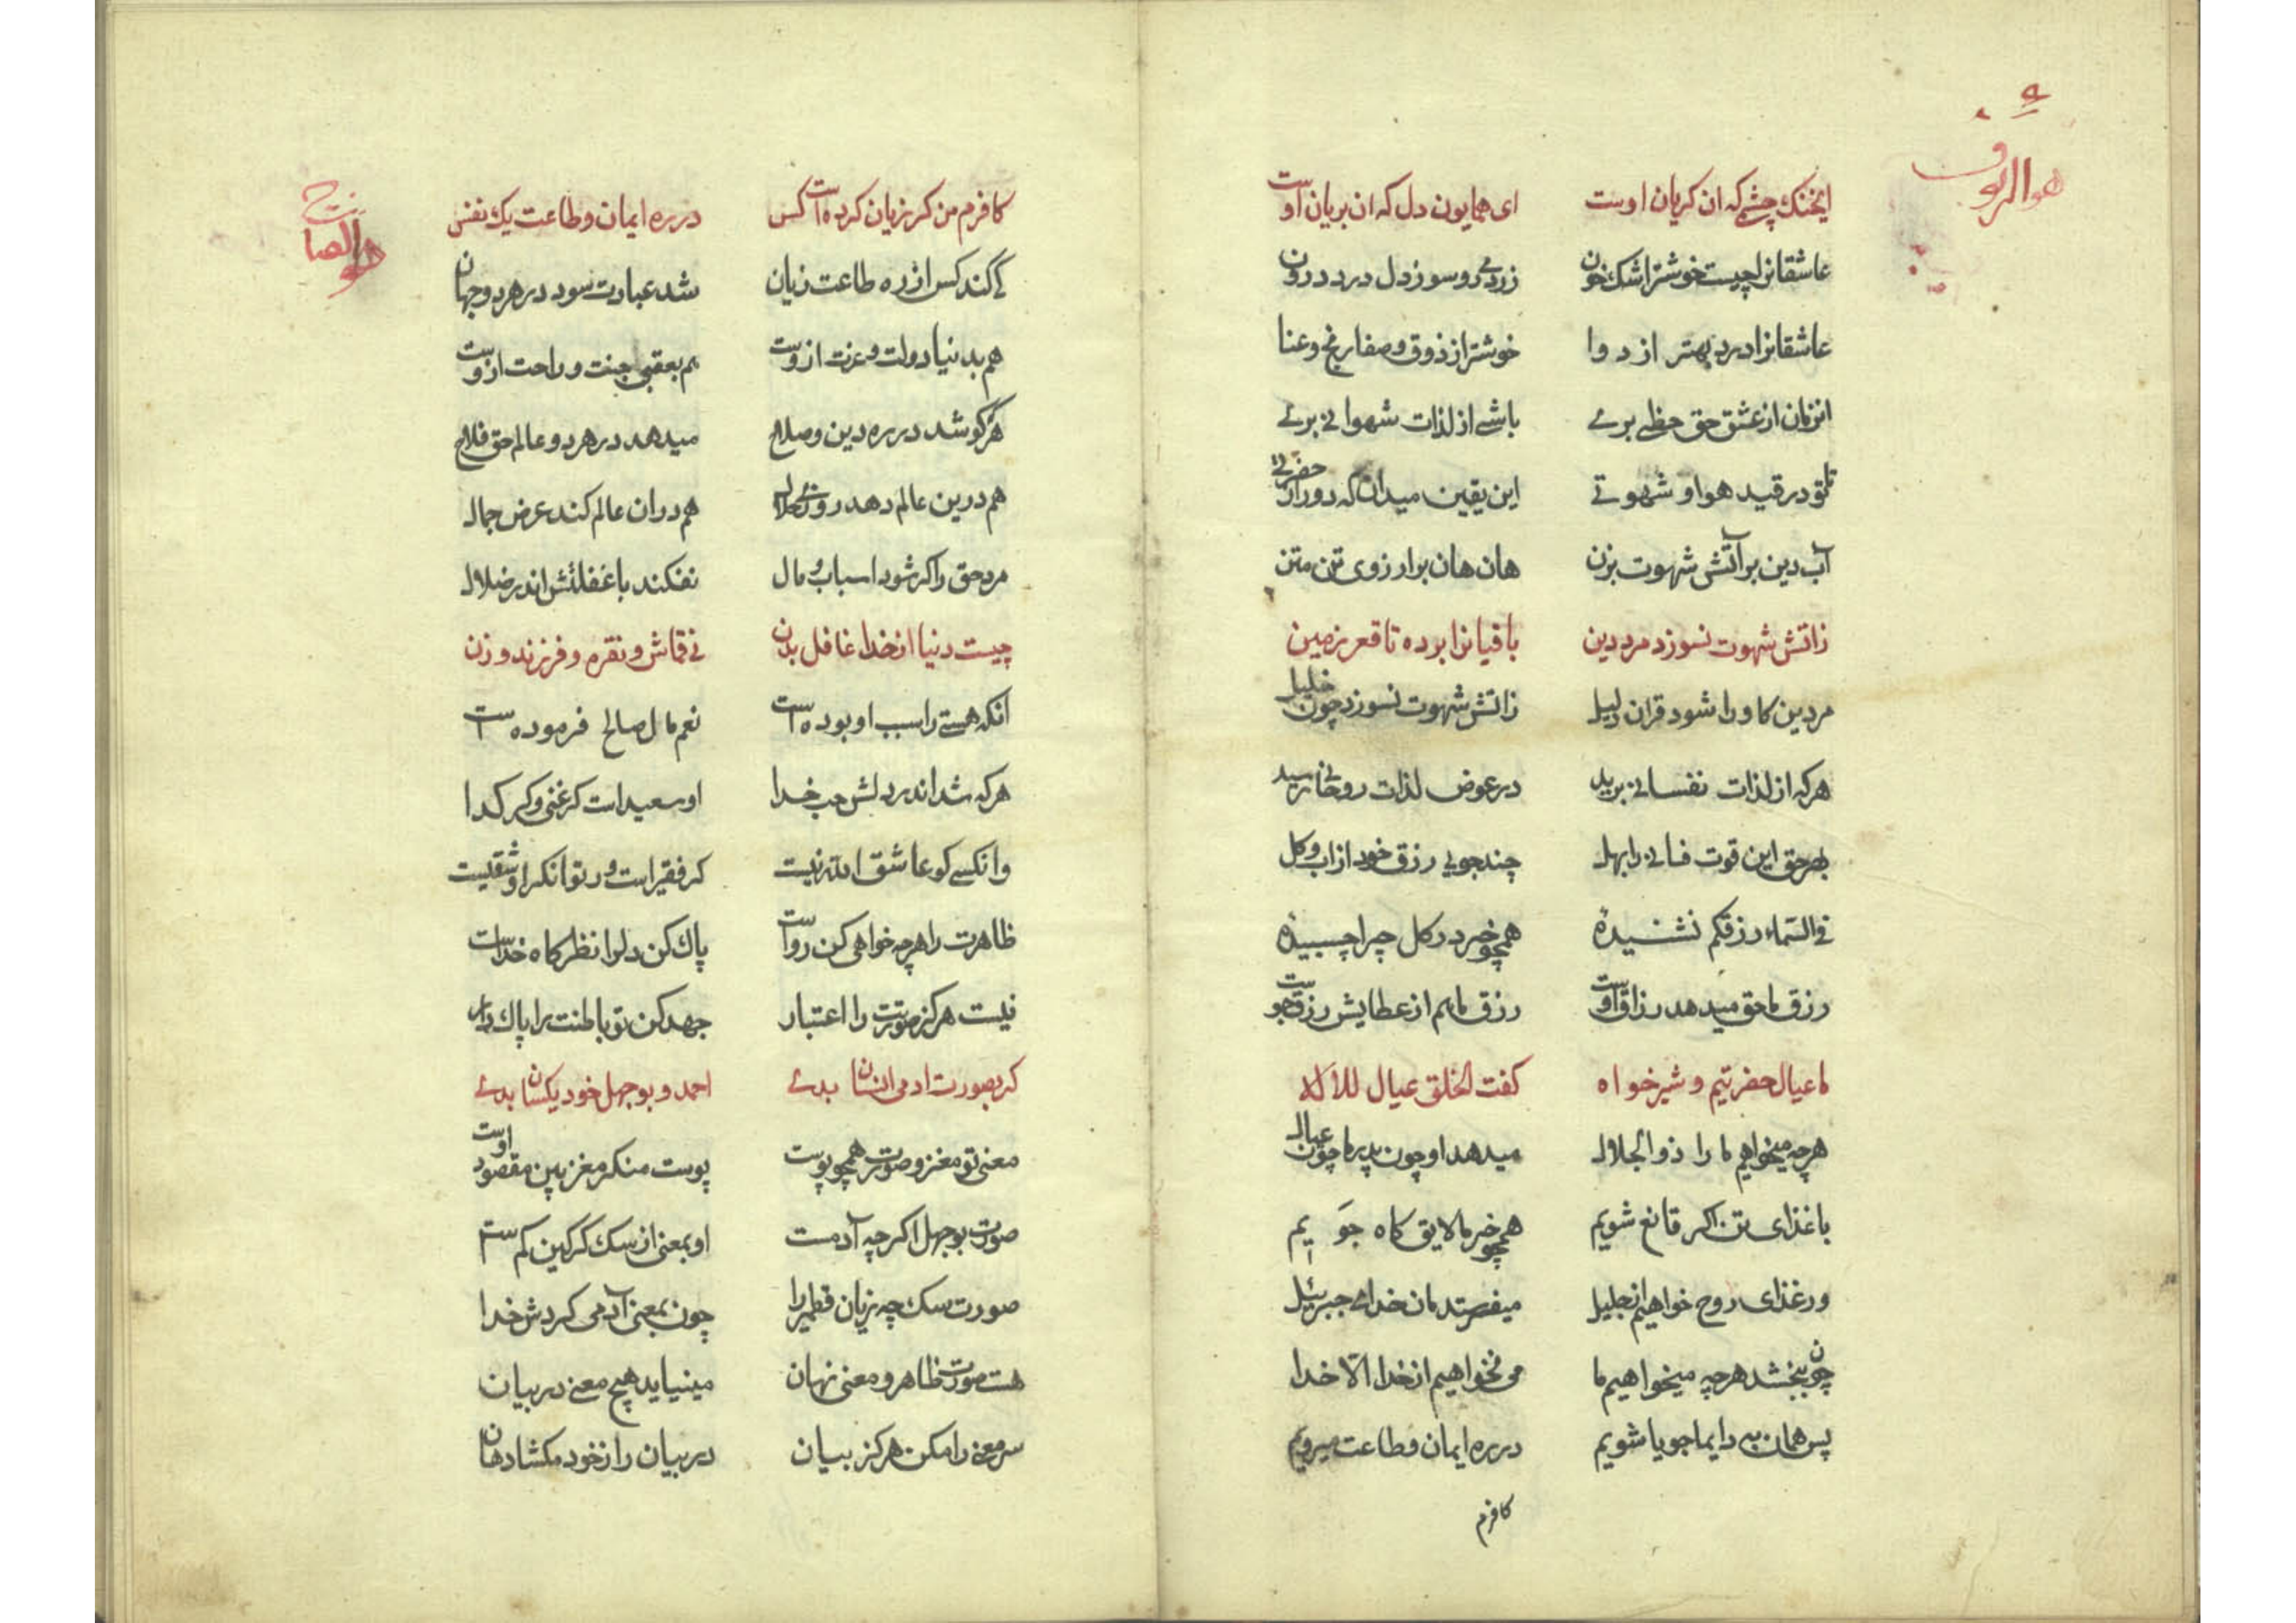 هو الرؤف
ایخنک چشمی که ان کریان اوست ای همایون دل که ان بریان اوست
عاشقانرا چیست خوشتر اشک خون زردی رو سوز دل درد درون
عاشقانرا درد بهتر از دوا خوشتر از ذوق و صفا رنج و عنا
انزمان از عشق حق حظی بری باشی از لذات شهوانی بری
تا تو در قید هوا و شهوتی این یقین میدان که دور از حضرتی
آب دین بر آتش شهوت بزن هان هان بر ارزوی تن متن
زاتش شهوت نسوزد مرد دین باقیانرا برده تا قعر زمین
مرد دین کاورا شود قران دلیل زاتش شهوت نسوزد چون خلیل
هر که از لذات نفسانی برید در عوض لذات روحانی رسید
بهر حق این قوت فانی را بهل چند جویی رزق خود از اب و کل
فی السماء رزقکم نشنیدهٔ همچو خر در کل چرا چسبیدهٔ
رزق ما حق میدهد رزاق اوست رزق ما هم از عطایش رزق جوست
ما عیال حضرتیم و شیر خواه کفت الخلق عیال للاله
هرچه میخواهیم ما را ذوالجلال میدهد او چون پدر ما چون عیال
با غذای تن اکر قانع شویم همچو خر ما لایق کاه جویم
ور غذای روح خواهیم از جلیل میفرستدمان خدای جبرئیل
چون ببخشد هرچه میخواهیم ما می نخواهیم از خدا الّا خدا
پس همان به دایما جویا شویم در ره ایمان و طاعت میرویم
کافرم
هو الصالح
کافرم من کر زیان کرده است کس در ره ایمان و طاعت یک نفس
کی کند کس از ره طاعت زیان شد عبادت سود در هر دو جهان
هم بدنیا دولت و عزت ازوست هم بعقبی جنت و راحت ازوست
هر کو شد در ره دین و صلاح میدهد در هر دو عالم حق فلاح
هم درین عالم دهد روزی حلال هم دران عالم کند عرض جمال
مرد حق را کر شود اسباب و مال نفکند با غفلتش اندر ضلال
چیست دنیا از خدا غافل بدن نی قماش و نقره و فرزند و زن
انکه هستی را سبب او بوده است نعم مال صالح فرموده است
هر که شد اندر دلش حب خدا او سعید است کر غنی و کر کدا
وانکسی کو عاشق الله نیست کر فقیر است ور توانکر او شقیست
ظاهرت را هرچه خواهی کن رواست پاک کن دلرا نظرکاه خداست
نیست هرکز صورتت را اعتبار جهد کن تو باطنت را پاک دار
کر بصورت ادمی انسان بدی احمد و بوجهل خود یکسان بدی
معنی تو مغز و صورت همچو پوست پوست منکر مغز بین مقصود اوست
صورت بوجهل اکرچه آدمست او بمعنی از سک کرکین کم است
صورت سک چه زیان قطمیر را چون بمعنی آدمی کردش خدا
هست صورت ظاهر و معنی نهان مینیاید هیچ معنی در بیان
سر معنی را مکن هرکز بیان در بیان راز خود مکشا دهان